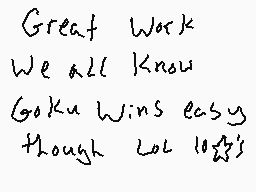 Great Work
We all Know
Goku Wins easy
though LoL 10☆'s